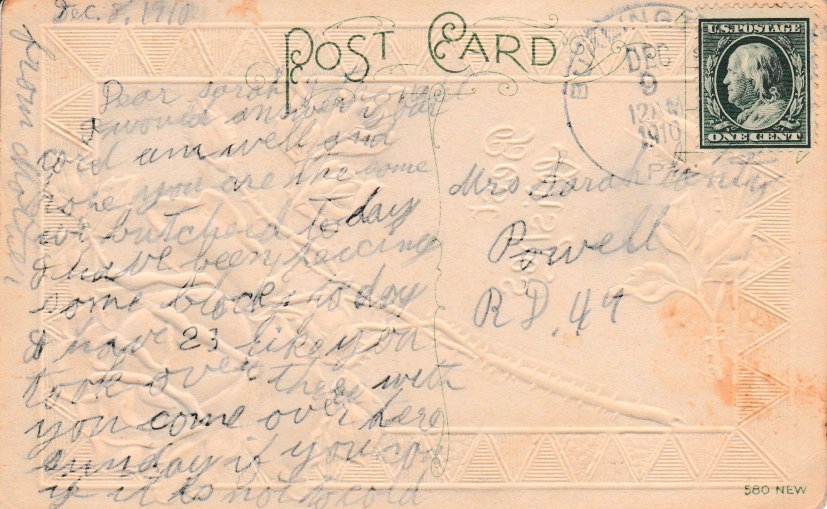 Dec. 8, 1910
POST CARD
U.S. POSTAGE
ONE CENT
DEC
9
12 AM
1910
PA
from
Dear Sarah I thought
I would answer your
card am well and
hope you are the same
we butcherd to day
I have been peicing
some blocks to day
I have 23 like you
took over there with
you come over here
sunday if you can
if it is not to cold
Mrs Sarah
Powell
R.D. 49
Best
Wishes
580 NEW